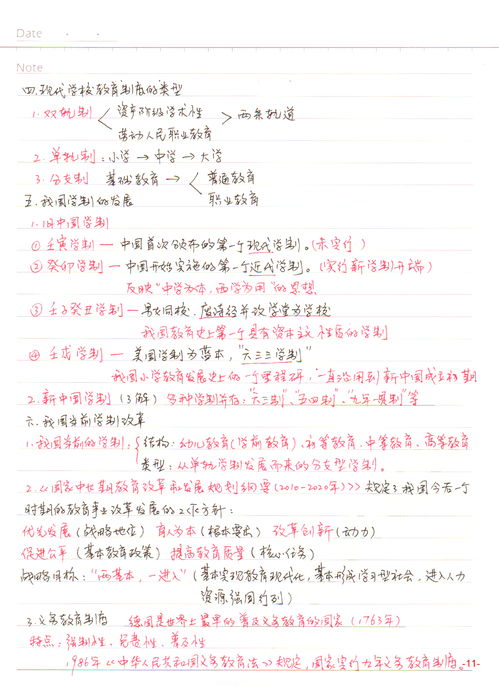 Date
Note
四.现代学校教育制度的类型
1.双轨制 < 资产阶级学术性 > 两条轨道
劳动人民职业教育
2.单轨制:小学→中学→大学
3.分支制 基础教育→< 普通教育
职业教育
五.我国学制的发展
1.旧中国学制
①壬寅学制—中国首次颁布的第一个现代学制。(未实行)
②癸卯学制—中国开始实施的第一个近代学制。(实行新学制开端)
反映"中学为本,西学为用"的思想
③壬子癸丑学制—男女同校,废除读经并改学堂为学校
我国教育史上第一个具有资本主义性质的学制
④壬戌学制—美国学制为蓝本,"六三三学制"
我国小学教育发展史上的一个里程碑,一直沿用到新中国成立初期
2.新中国学制(了解)多种学制并存:"六三制"、"五四制"、"九年一贯制"等
六.我国当前学制改革
1.我国当前的学制:{结构:幼儿教育(学前教育)、初等教育、中等教育、高等教育
类型:从单轨学制发展而来的分支型学制。
2.《国家中长期教育改革和发展规划纲要(2010-2020年)》规定了我国今后一个
时期的教育事业改革发展的工作方针:
优先发展(战略地位) 育人为本(根本要求) 改革创新(动力)
促进公平(基本教育政策) 提高教育质量(核心任务)
战略目标:"两基本,一进入"(基本实现教育现代化,基本形成学习型社会,进入人力
资源强国行列)
3.义务教育制度 德国是世界上最早的普及义务教育的国家(1763年)
特点:强制性、免费性、普及性
1986年《中华人民共和国义务教育法》规定,国家实行九年义务教育制度。
-11-